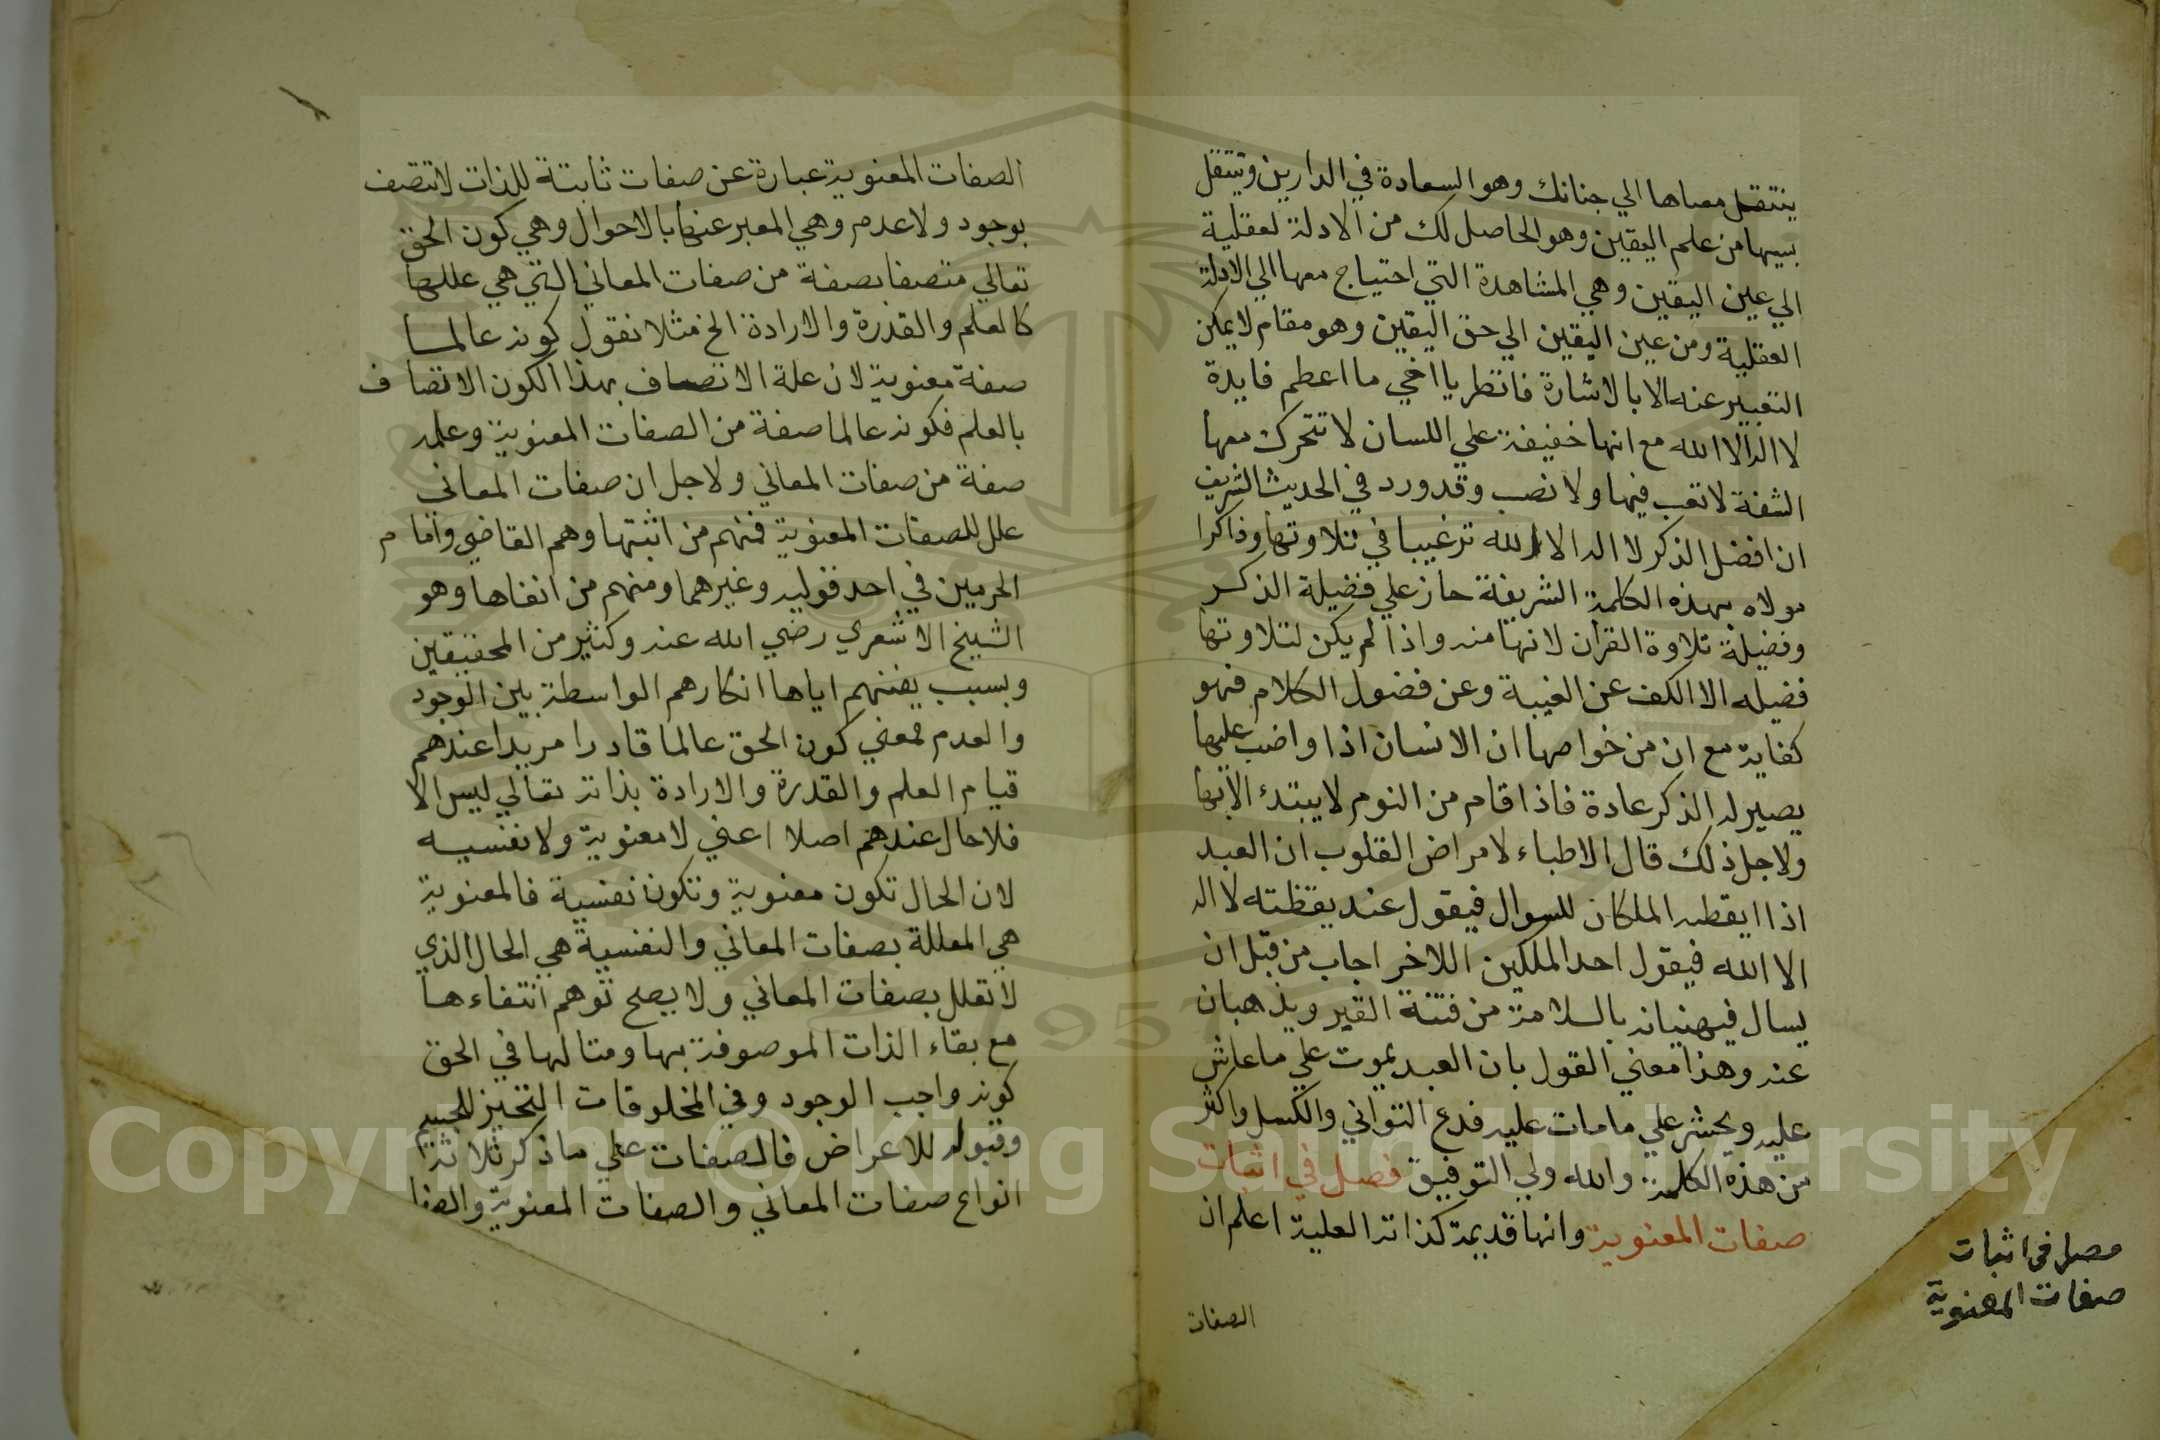 ينتقل معناها الي جنانك وهو السعادة في الدارين وينتقل
بسببها من علم اليقين وهو الحاصل لك من الادلة لعقلية
الي عين اليقين وهي المشاهدة التي احتياج معها الي الادلة
العقلية ومن عين اليقين الي حق اليقين وهو مقام لا يمكن
التعبير عنه الا بالاشارة فانظر يا اخي ما اعظم فايدة
لا اله الا الله مع انها خفيفة علي اللسان لا تتحرك معها
الشفة لا تعب فيها ولا نصب وقد ورد في الحديث الشريف
ان افضل الذكر لا اله الا الله ترغيبا في تلاوتها وذاكرا
مولاه بهذه الكلمة الشريفة حاز علي فضيلة الذكر
وفضيلة تلاوة القران لانها منه واذا لم يكن لتلاوتها
فضيله الا الكف عن الغيبة وعن فضول الكلام فهو
كفاية مع ان من خواصها ان الانسان اذا واضب عليها
يصير له الذكر عادة فاذا قام من النوم لا يبتدئ الا بها
ولاجل ذلك قال الاطباء لامراض القلوب ان العبد
اذا ايقظه الملكان للسوال فيقول عند يقظته لا اله
الا الله فيقول احد الملكين اللاخر اجاب من قبل ان
يسال فيهنيانه بالسلامة من فتنة القبر ويذهبان
عنه وهذا معني القول بان العبد يموت علي ما عاش
عليه ويحشر علي ما مات عليه فدع التواني والكسل واكثر
من هذه الكلمة والله ولي التوفيق فصل في اثبات
صفات المعنوية وانها قديمة كذاته العلية اعلم ان
الصفات
فصل في اثبات
صفات المعنوية
الصفات المعنوية عبارة عن صفات ثابتة للذات لا تتصف
بوجود ولا عدم وهي المعبر عنها بالاحوال وهي كون الحق
تعالي متصفا بصفة من صفات المعاني التي هي عللها
كالعلم والقدرة والارادة الخ مثلا نقول كونه عالما
صفة معنوية لان علة الاتصاف بهذا الكون الاتصاف
بالعلم فكونه عالما صفة من الصفات المعنوية وعلمه
صفة من صفات المعاني ولاجل ان صفات المعاني
علل للصفات المعنوية فمنهم من اثبتها وهم القاضي وامام
الحرمين في احد قوليه وغيرهما ومنهم من انفاها وهو
الشيخ الاشعري رضي الله عنه وكثير من المحققين
وبسبب يفنهم اياها انكارهم الواسطة بين الوجود
والعدم فمعني كون الحق عالما قادرا مريدا عندهم
قيام العلم والقدرة والارادة بذاته تعالي ليس الا
فلا حال عندهم اصلا اعني لا معنوية ولا نفسيه
لان الحال تكون معنوية وتكون نفسية فالمعنوية
هي المعللة بصفات المعاني والنفسية هي الحال الذي
لا تعلل بصفات المعاني ولا يصح توهم انتفاءها
مع بقاء الذات الموصوفة بها ومثالها في الحق
كونه واجب الوجود وفي المخلوقات التحيز للجسم
وقبوله للاعراض فالصفات علي ما ذكر ثلاثة
انواع صفات المعاني والصفات المعنوية والصفا
Copyright © King Saud University
1957